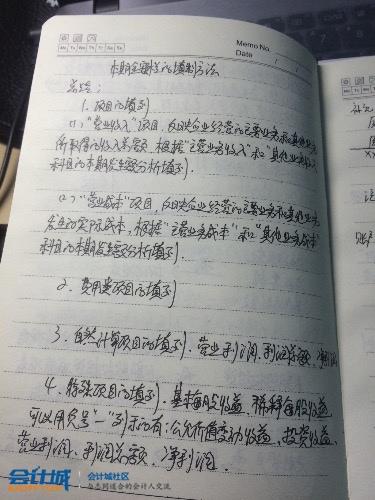 Memo No.
Mo Tu We Th Fr Sa Su
Date / /
本期金额栏的填制方法
总结：
1. 项目的填列
(1) "营业收入"项目，反映企业经营的主营业务和其他业务
所取得的收入总额，根据"主营业务收入"和"其他业务收入"
科目的本期发生额分析填列。
(2) "营业成本"项目，反映企业经营的主营业务和其他业务
发生的实际成本，根据"主营业务成本"和"其他业务成本"
科目的本期发生额分析填列。
2. 费用类项目的填列
3. 自然计算项目的填列，营业利润、利润总额、净利润
4. 特殊项目的填列，基本每股收益、稀释每股收益，
可以用负号"-"列示的有：公允价值变动收益、投资收益、
营业利润、利润总额、净利润。
会计城
会计城社区
与志同道合的会计人交流